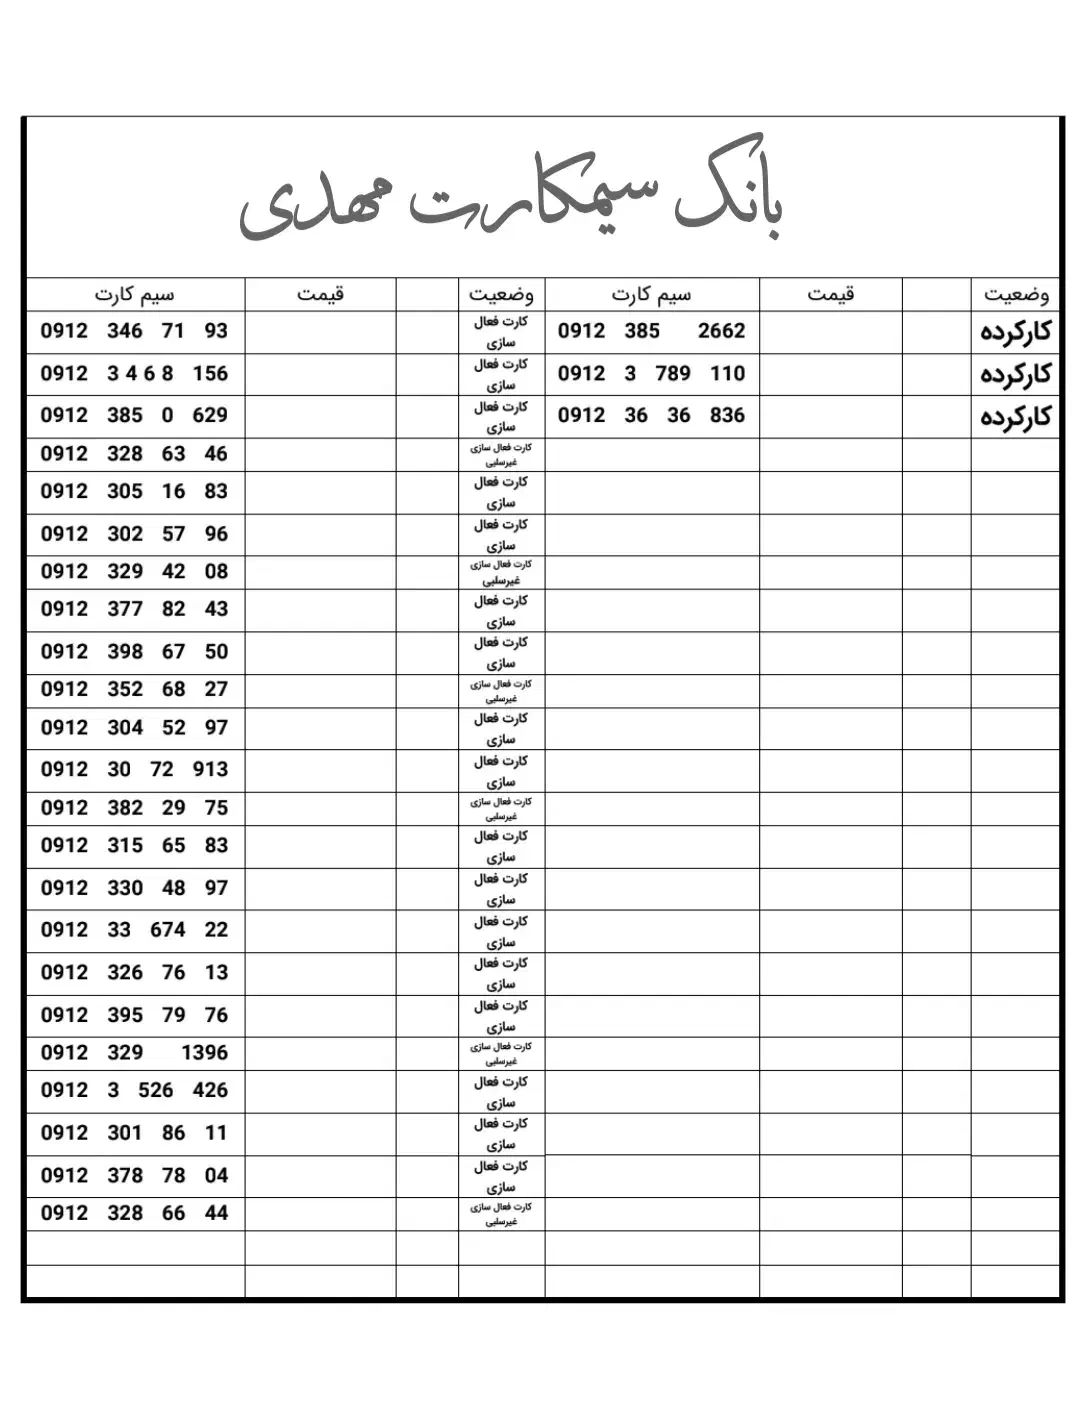 بانک سیمکارت مهدی
سیم کارت قیمت وضعیت سیم کارت قیمت وضعیت
0912 346 71 93 کارت فعال سازی 0912 385 2662 کارکرده
0912 3 4 6 8 156 کارت فعال سازی 0912 3 789 110 کارکرده
0912 385 0 629 کارت فعال سازی 0912 36 36 836 کارکرده
0912 328 63 46 کارت فعال سازی غیرسلبی
0912 305 16 83 کارت فعال سازی
0912 302 57 96 کارت فعال سازی
0912 329 42 08 کارت فعال سازی غیرسلبی
0912 377 82 43 کارت فعال سازی
0912 398 67 50 کارت فعال سازی
0912 352 68 27 کارت فعال سازی غیرسلبی
0912 304 52 97 کارت فعال سازی
0912 30 72 913 کارت فعال سازی
0912 382 29 75 کارت فعال سازی غیرسلبی
0912 315 65 83 کارت فعال سازی
0912 330 48 97 کارت فعال سازی
0912 33 674 22 کارت فعال سازی
0912 326 76 13 کارت فعال سازی
0912 395 79 76 کارت فعال سازی
0912 329 1396 کارت فعال سازی غیرسلبی
0912 3 526 426 کارت فعال سازی
0912 301 86 11 کارت فعال سازی
0912 378 78 04 کارت فعال سازی
0912 328 66 44 کارت فعال سازی غیرسلبی